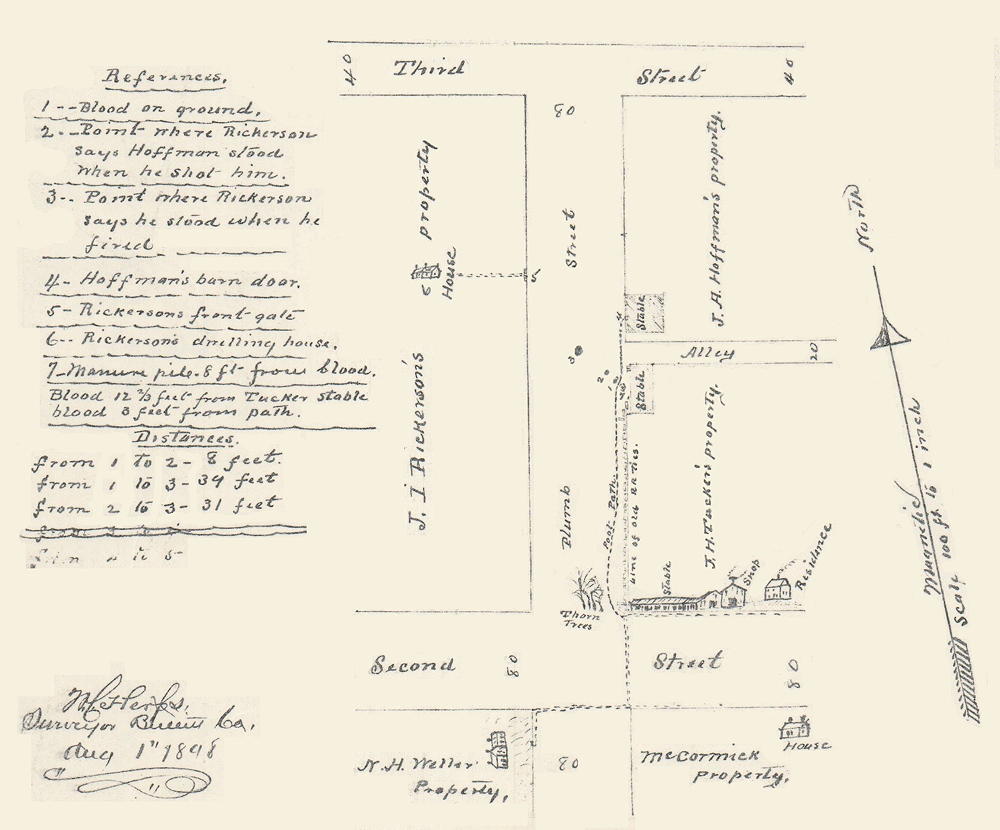 References.
1 -- Blood on ground.
2. -- Point where Rickerson
says Hoffman stood
when he shot him.
3-- Point where Rickerson
says he stood when he
fired
4- Hoffman's barn door.
5- Rickersons front gate
6-- Rickerson's dwelling house.
7- Manure pile. 8 ft from blood.
Blood 12 2/3 feet from Tucker stable
blood 3 feet from path.
Distances.
from 1 to 2 - 8 feet.
from 1 to 3 - 39 feet
from 2 to 3 - 31 feet
Surveyor Co.
Aug 1" 1898
40 Third Street 40
80
J. I Rickerson's property
6 House 5
Plumb Street
J. A. Hoffman's property.
Stable
4
Alley 20
3
2
1
7
Stable
J. H. Tucker's property.
Foot Path
Line of old
Thorn
Trees
Stable
Shop
Residence
Second 80 Street 80
N. H. Weller
Property,
80
McCormick
Property,
House
North
Magnetic
Scale 100 ft. to 1 inch